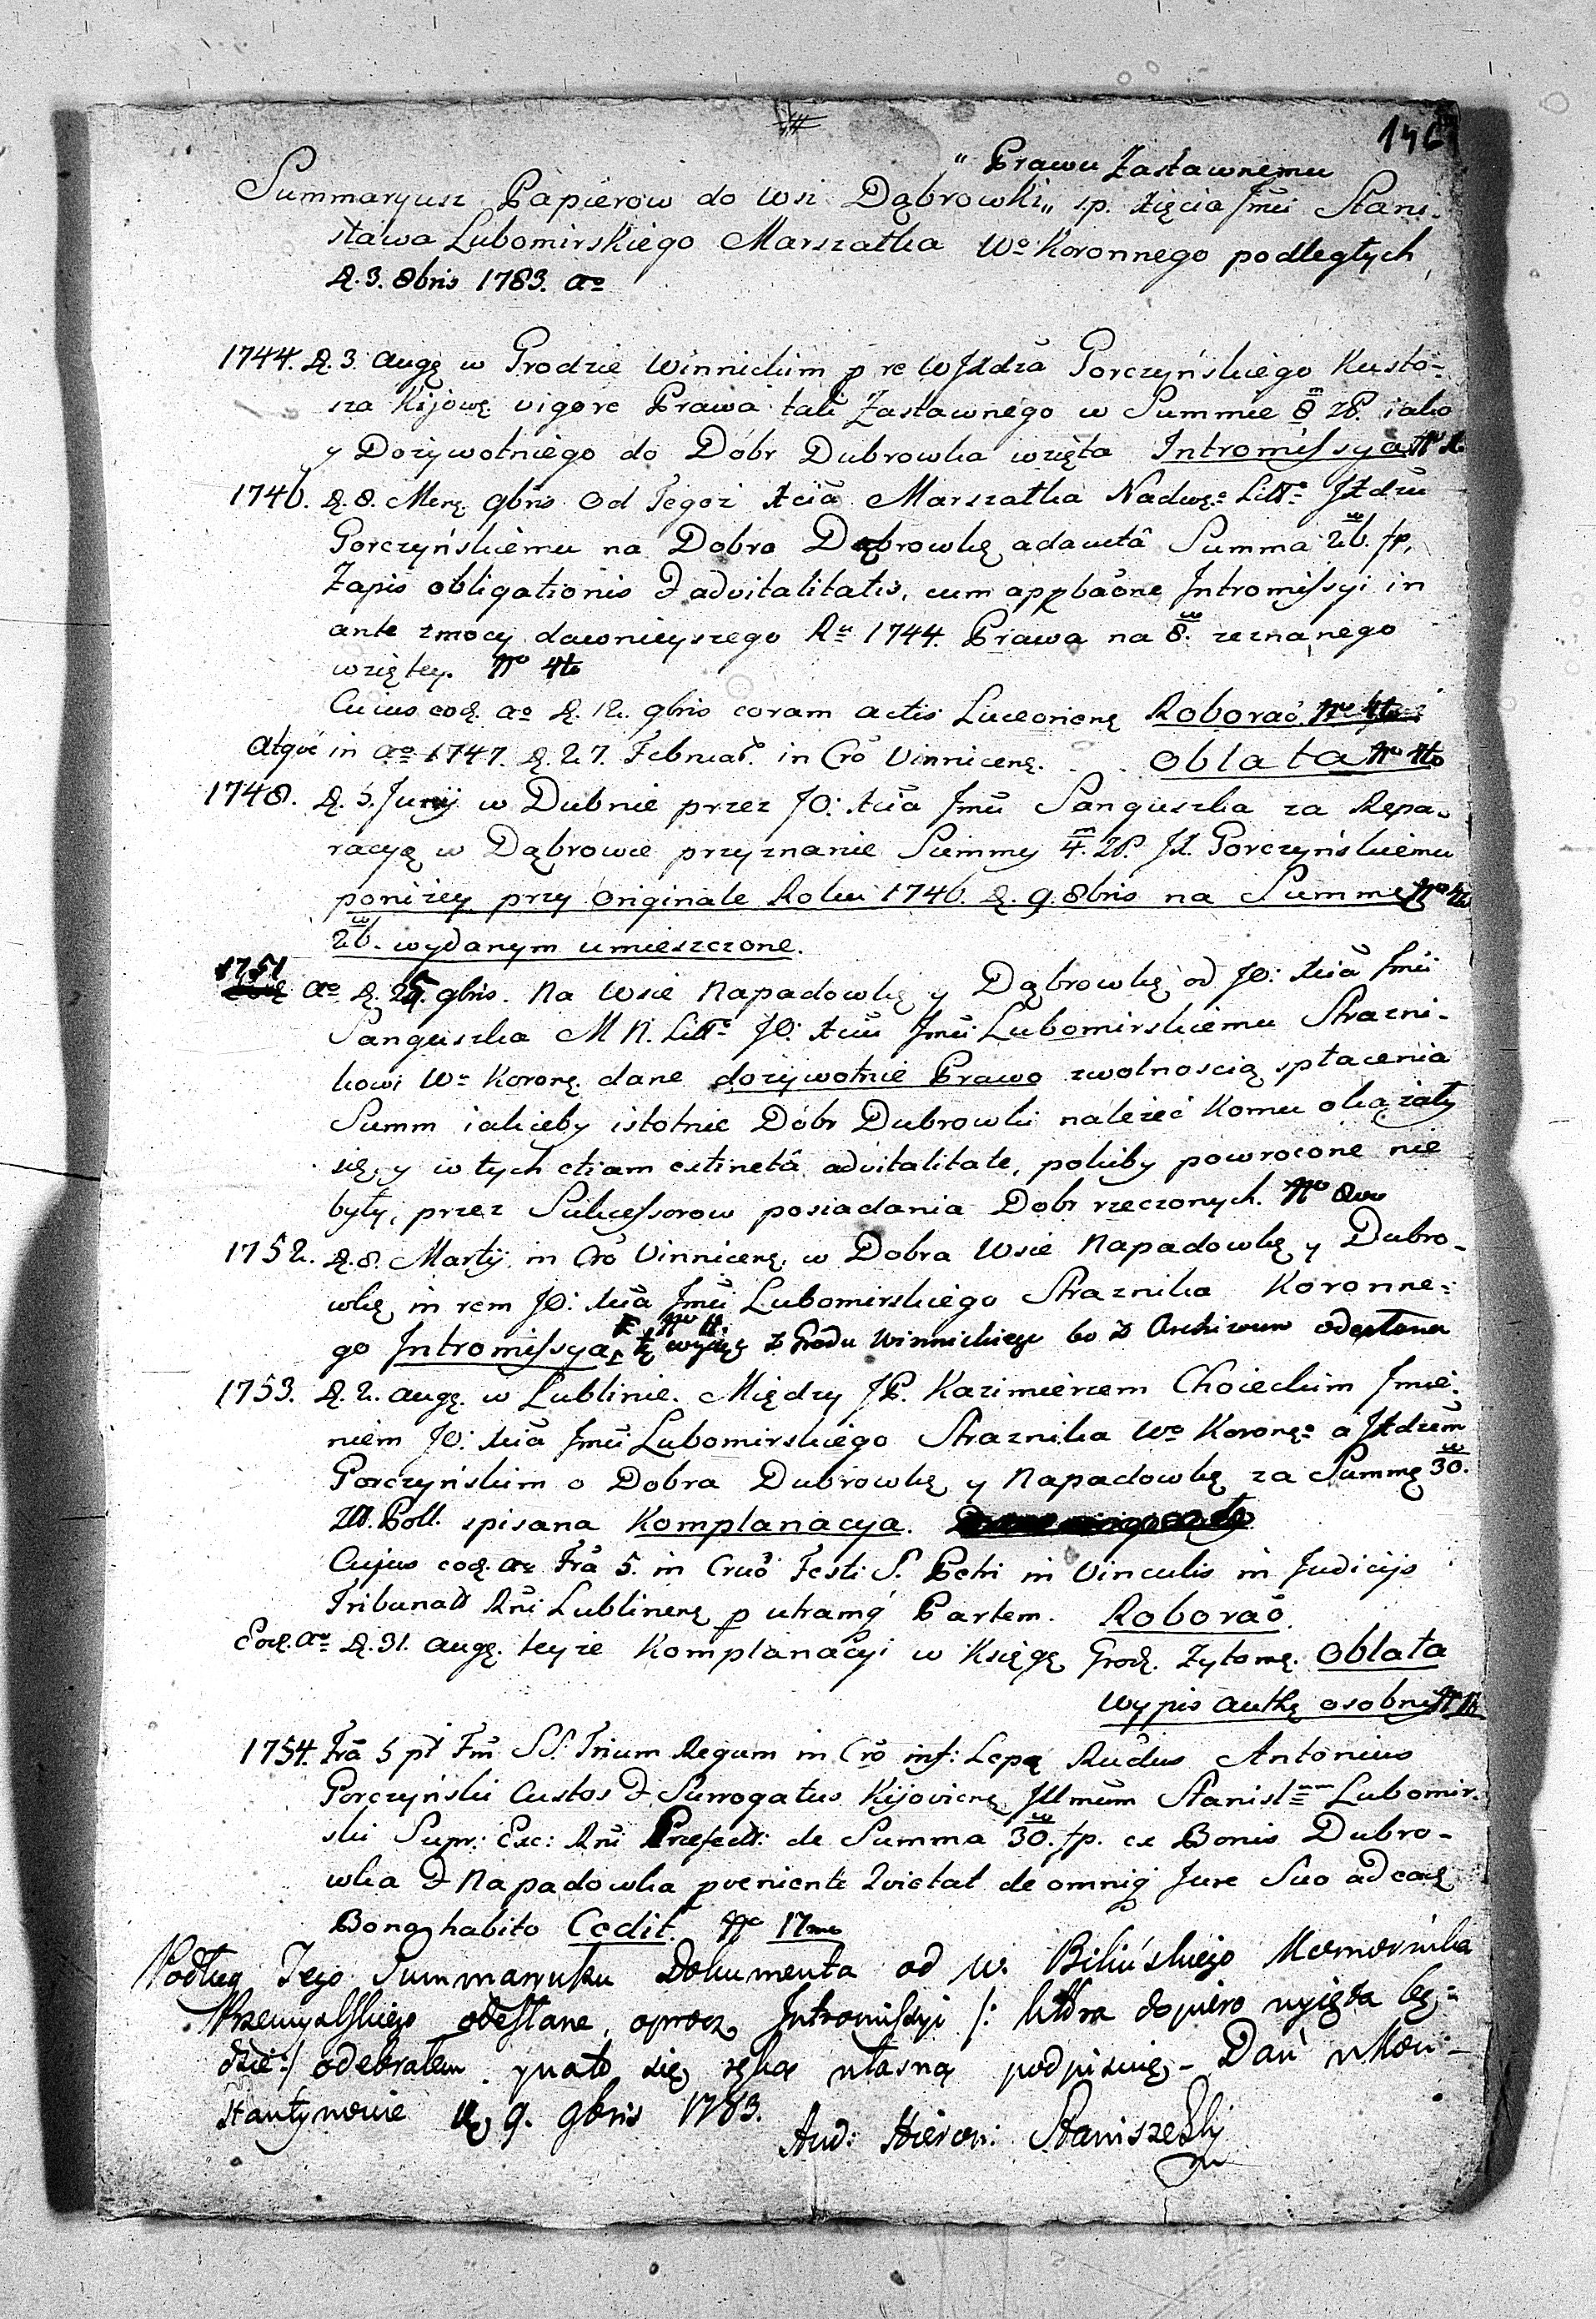 146
" Prawu Zastawnemu
Summaryusz Papierow do Wsi Dąbrowki „ sp. Xięcia Jmći Stani-
sława Lubomirskiego Marszałka Wº Koronnego podległych
D. 3. 8bris 1783. aº
1744. D. 3. Augę w Grodzie Winnickim p re WJXdza Gorczyńskiego Kusto-
sza Kijowę vigore Prawa tak Zastawnego w Summie 8 zł. iako
y Dożywotniego do Dóbr Dubrowka wzięta Intromissya Nº
1746. D. 8. Mensę 9bris Od Tegoż Xcia Marszałka Nadwę: Litt: JXdzu
Gorczyńskiemu na Dobro Dąbrowkę adauctâ Summa 26. fp.
Zapis obligationis & advitalitatis, cum appbaône Intromissyi in
ante zmocy dawnieyszego Ru 1744. Prawa na 8. zeznanego
wziętey. Nº 4to
Cuius eodę. aº D. 12. 9bris coram actis Luceoriensę Roboraô Nº 4to
Atque in aº 1747. D. 27. Februar. in Cro Vinnicensę. . . Oblata Nº 4to
1748. D. 5. Junij w Dubnie przez JO: Xcia Jmći Sanguszka za Repa-
racyę w Dąbrowie przyznanie Summy 4. zł. JX. Gorczyńskiemu
poniżey przy Originale Roku 1746. D. 9. 8bris na Summę Nº
26. wydanym umieszczone.
1751 aº D. 25. 9bris. Na Wsie Napadowkę y Dąbrowkę od JO: Xcia Jmći
Sanguszka M N. Litt: JO: Xciu Jmći Lubomirskiemu Strazni-
kowi Wº Koronę. dane dożywotnie Prawo zwolnoscią spłacenia
Summ iakieby istotnie Dóbr Dubrowki należeć Komu okazały
się, y w tych etiam extinctâ advitalitate, pokiby powrocone nie
były, przez Sukcessorow posiadania Dobr rzeczonych. Nº 8vo
1752. D. 8. Martij in Cro Vinnicensę, w Dobra Wsie Napadowkę y Dubro-
wkę in rem JO: Xcia Jmći Lubomirskiego Straznika Koronne-
go Intromissya z Grodu Winnickiego bo z Archiwum odesłana
1753. D. 2. Augę. w Lublinie. Między JP. Kazimierzem Choieckim Jmie-
niem JO: Xcia Jmći Lubomirskiego Straznika Wº Koronę: a JXdzem
Gorczyńskim o Dobra Dubrowkę y Napadowkę za Summę 30.
Zł. Poll. spisana Komplanacya.
Cujus eodę. aº Fra 5. in Cruô Festi S. Petri in Vinculis in Judicijs
Tribunalł Rñi Lublinensę p utramq Partem. Roboraô.
Eodę. aº D. 31. Augę. teyże Komplanacyi w Księgę Grodę. Zytomę. Oblata
Wypis authę osobny
1754. Fra 5 pt Fm SS. Trium Regum in Cro inf: Lepę Rñdus Antonius
Gorczyński Custos & Surrogatus Kijoviensę Jllmum Stanisłum Lubomir-
ski Supr: Exc: Rñi Prefect: de Summa 30. fp. ex Bonis Dubro-
wka & Napadowka pveniente Quietat de omniq Jure Suo ad eadę
Bona habito Cedit. Nº 17mo
Podług Tego Summaryuku Dokumenta od W. Bilińskiego Komornika
Przemyslskiego odesłane, oprocz Intromissyi /: ktora dopiero wyięta bę-
dzie:/ odebrałem ynato się ręką własną podpisuię - Dan w Kon-
stantynowie D. 9. 9bris 1783.
And: Hieron: Staniszewski